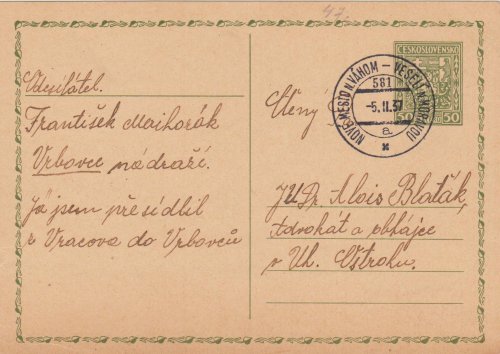 47.
ČESKOSLOVENSKO
50 50
NOVÉ MESTO N. VÁHOM – VESELÍ N. MORAVOU
581
-5.II.37
a
Odesilatel.
František Maihorák
Vrbovce nádraží.
Já jsem přesídlil
z Vracova do Vrbovců
Ctěný
JUDr. Alois Blaťák,
Advokát a obhájce
v Uh. Ostrohu.